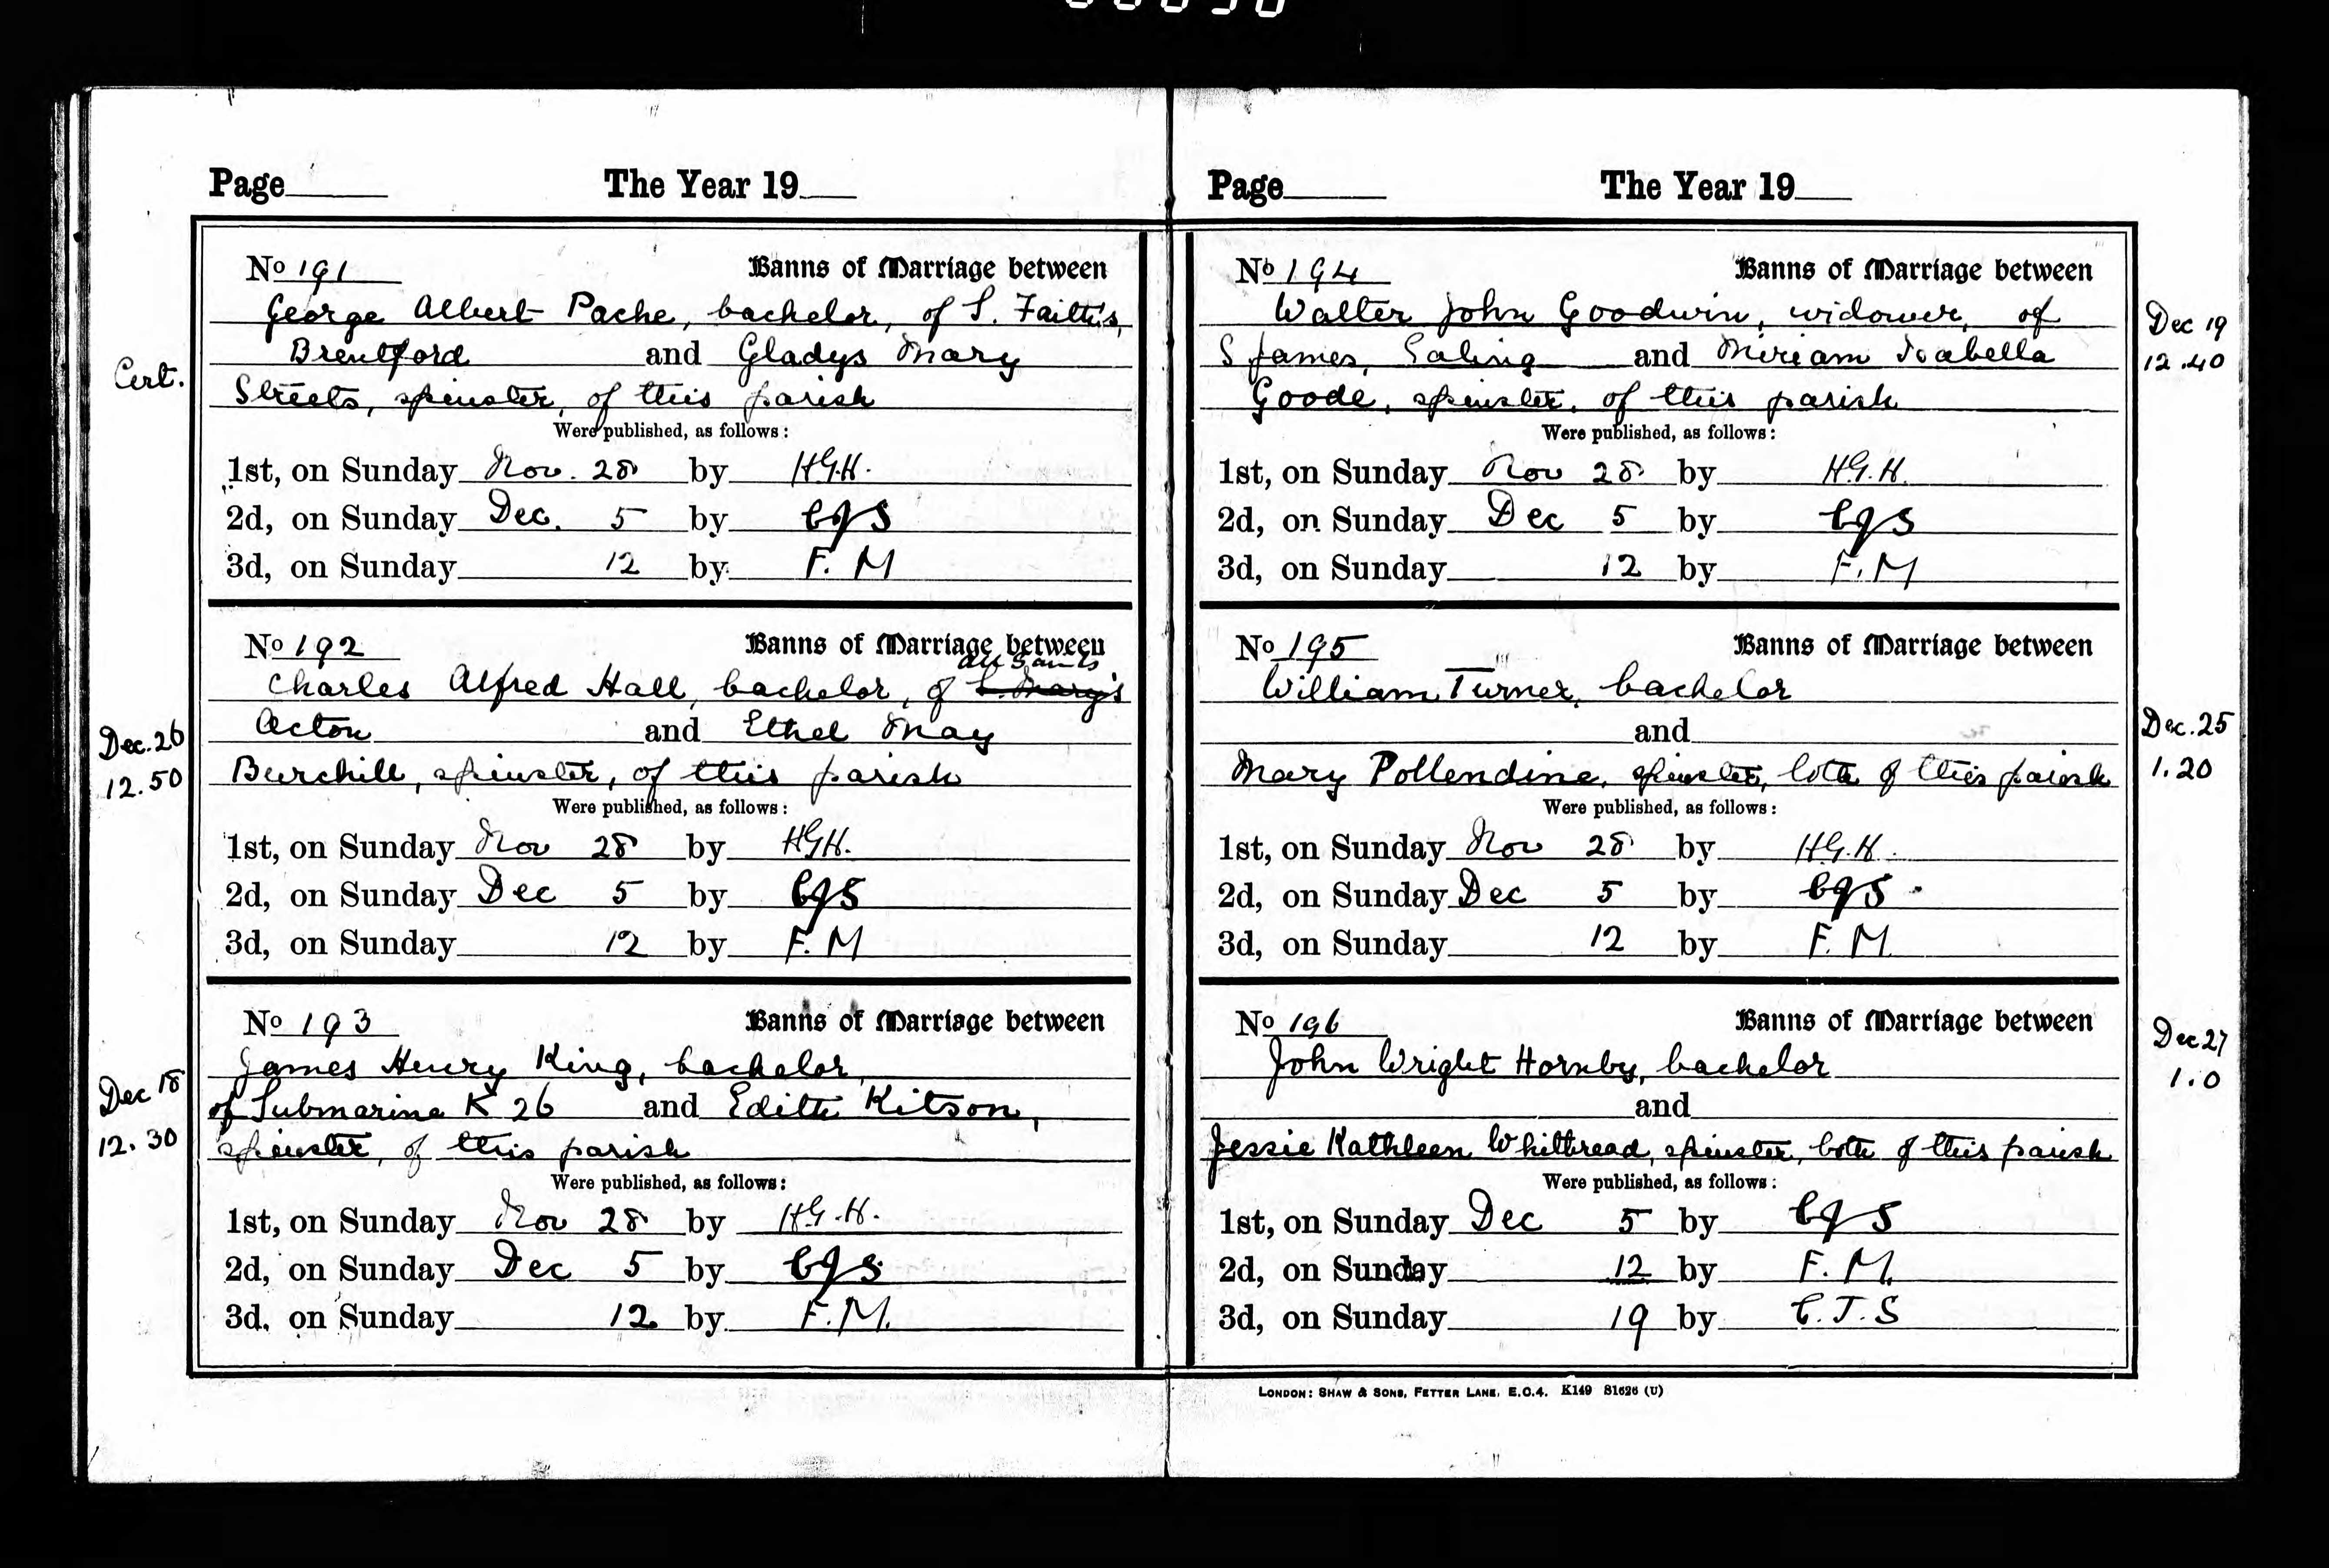 Page The Year 19
No 191 Banns of Marriage between
George Albert Pache, bachelor, of S. Faith's,
Brentford and Gladys Mary
Cert.
Streets, spinster, of this parish
Were published, as follows:
1st, on Sunday Nov. 28 by H.G.H.
2d, on Sunday Dec. 5 by
3d, on Sunday 12 by F. M
No 192 Banns of Marriage between
All Saints
Charles Alfred Hall, bachelor, of S. Mary's
Acton and Ethel May
Dec. 26
12.50
Burchill, spinster, of this parish
Were published, as follows:
1st, on Sunday Nov 28 by HGH.
2d, on Sunday Dec 5 by
3d, on Sunday 12 by F. M
No 193 Banns of Marriage between
James Henry King, bachelor,
of Submarine K 26 and Edith Kitson,
Dec 18
12.30
spinster, of this parish
Were published, as follows:
1st, on Sunday Nov 28 by H.G.H.
2d, on Sunday Dec 5 by
3d, on Sunday 12 by F.M.
Page The Year 19
No 194 Banns of Marriage between
Walter John Goodwin, widower, of
S James, Ealing and Miriam Isabella
Dec 19
12.40
Goode, spinster, of this parish
Were published, as follows:
1st, on Sunday Nov 28 by H.G.H.
2d, on Sunday Dec 5 by
3d, on Sunday 12 by F.M
No 195 Banns of Marriage between
William Turner, bachelor
and
Dec. 25
1.20
Mary Pollendine, spinster, both of this parish
Were published, as follows:
1st, on Sunday Nov 28 by H.G.H.
2d, on Sunday Dec 5 by
3d, on Sunday 12 by F. M.
No 196 Banns of Marriage between
John Wright Hornby, bachelor
and
Dec 27
1.0
Jessie Kathleen Whitbread, spinster, both of this parish
Were published, as follows:
1st, on Sunday Dec 5 by
2d, on Sunday 12 by F. M.
3d, on Sunday 19 by C.J.S
LONDON: SHAW & SONS, FETTER LANE, E.C.4. K149 81626 (U)